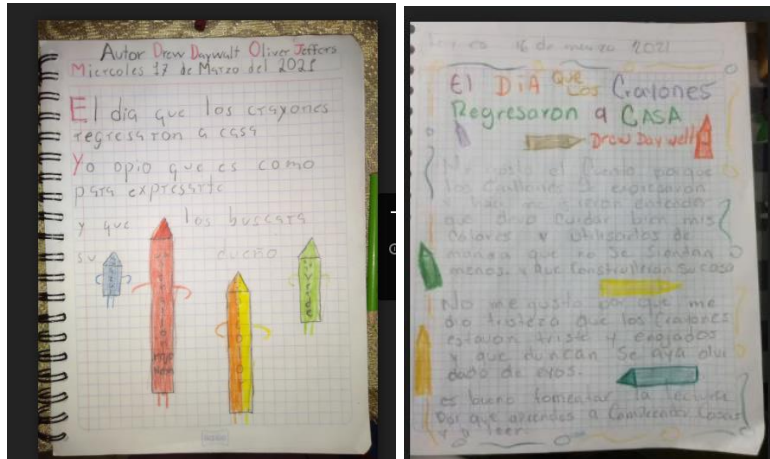 Autor Drew Daywalt Oliver Jeffers
Miercoles 17 de Marzo del 2021
El dia que los crayones
regresaron a casa
Yo opio que es como
para expresarte
y que los buscara
su dueño
16 de marzo 2021
El DiA que Los Crayones
Regresaron a CASA
Drew Daywell
Me gusto el Cuento porque
los Crallones se expresaron
que devo cuidar bien mis
Colores y utilisarlos de
manera que no se sientan
menos. y que Construlleran su casa
No me gusto por que me
dio tristeza que los Crallones
estavan triste y enojados
y que duncan se aya olvi
dado de ellos.
es bueno fomentar la lectura
por que aprendes a Comprender Cosas
y a leer.